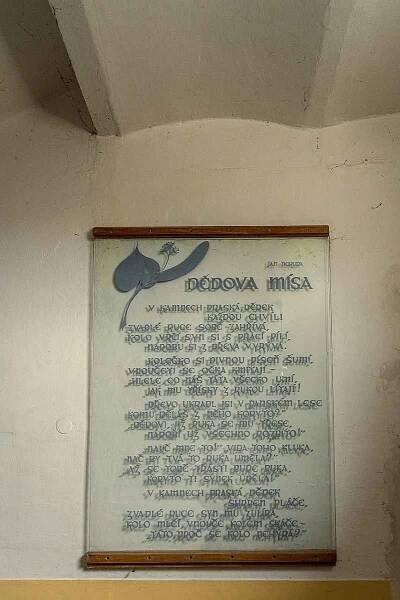 JAN NERUDA
DĚDOVA MÍSA
V KAMNECH PRASKÁ DĚDEK
KAŽDOU CHVÍLI
ZVADLÉ RUCE SOBĚ ZAHŘÍVÁ.
KOLO VRČÍ SYN SI S PRACÍ PÍLÍ.
NÁDOBU SI Z DŘEVA VYRÝVÁ.
KOLEČKO SI DIVNOU PÍSEŇ ŠUMÍ.
VNOUČETI SE OČKA KMITAJÍ –
"HLELE, CO NÁŠ TÁTA VŠECKO UMÍ.
JAK MU TŘÍSKY Z RUKOU LÍTAJÍ!
DŘEVO UKRADL JSI V PANSKÉM LESE
KOMU DĚLÁŠ Z NĚHO KORYTO?"
"DĚDOVI, JIŽ RUKA SE MU TŘESE.
NÁDOBÍ UŽ VŠECHNO ROZBITO!"
"NAUČ MNE TO!" VIDA TOHO KLUKA.
"NAČ BY TVÁ TO RUKA UMĚLA?"
"AŽ SE TOBĚ TŘÁSTI BUDE RUKA.
KORYTO TI SYNEK UDĚLÁ!"
V KAMNECH PRASKÁ DĚDEK
PLÁČE.
ZVADLÉ RUCE SYN MU ZULÍBÁ.
KOLO MLČÍ, VNOUČE KOLEM SKÁČE –
"TÁTO, PROČ SE KOLO NEHÝBÁ?"